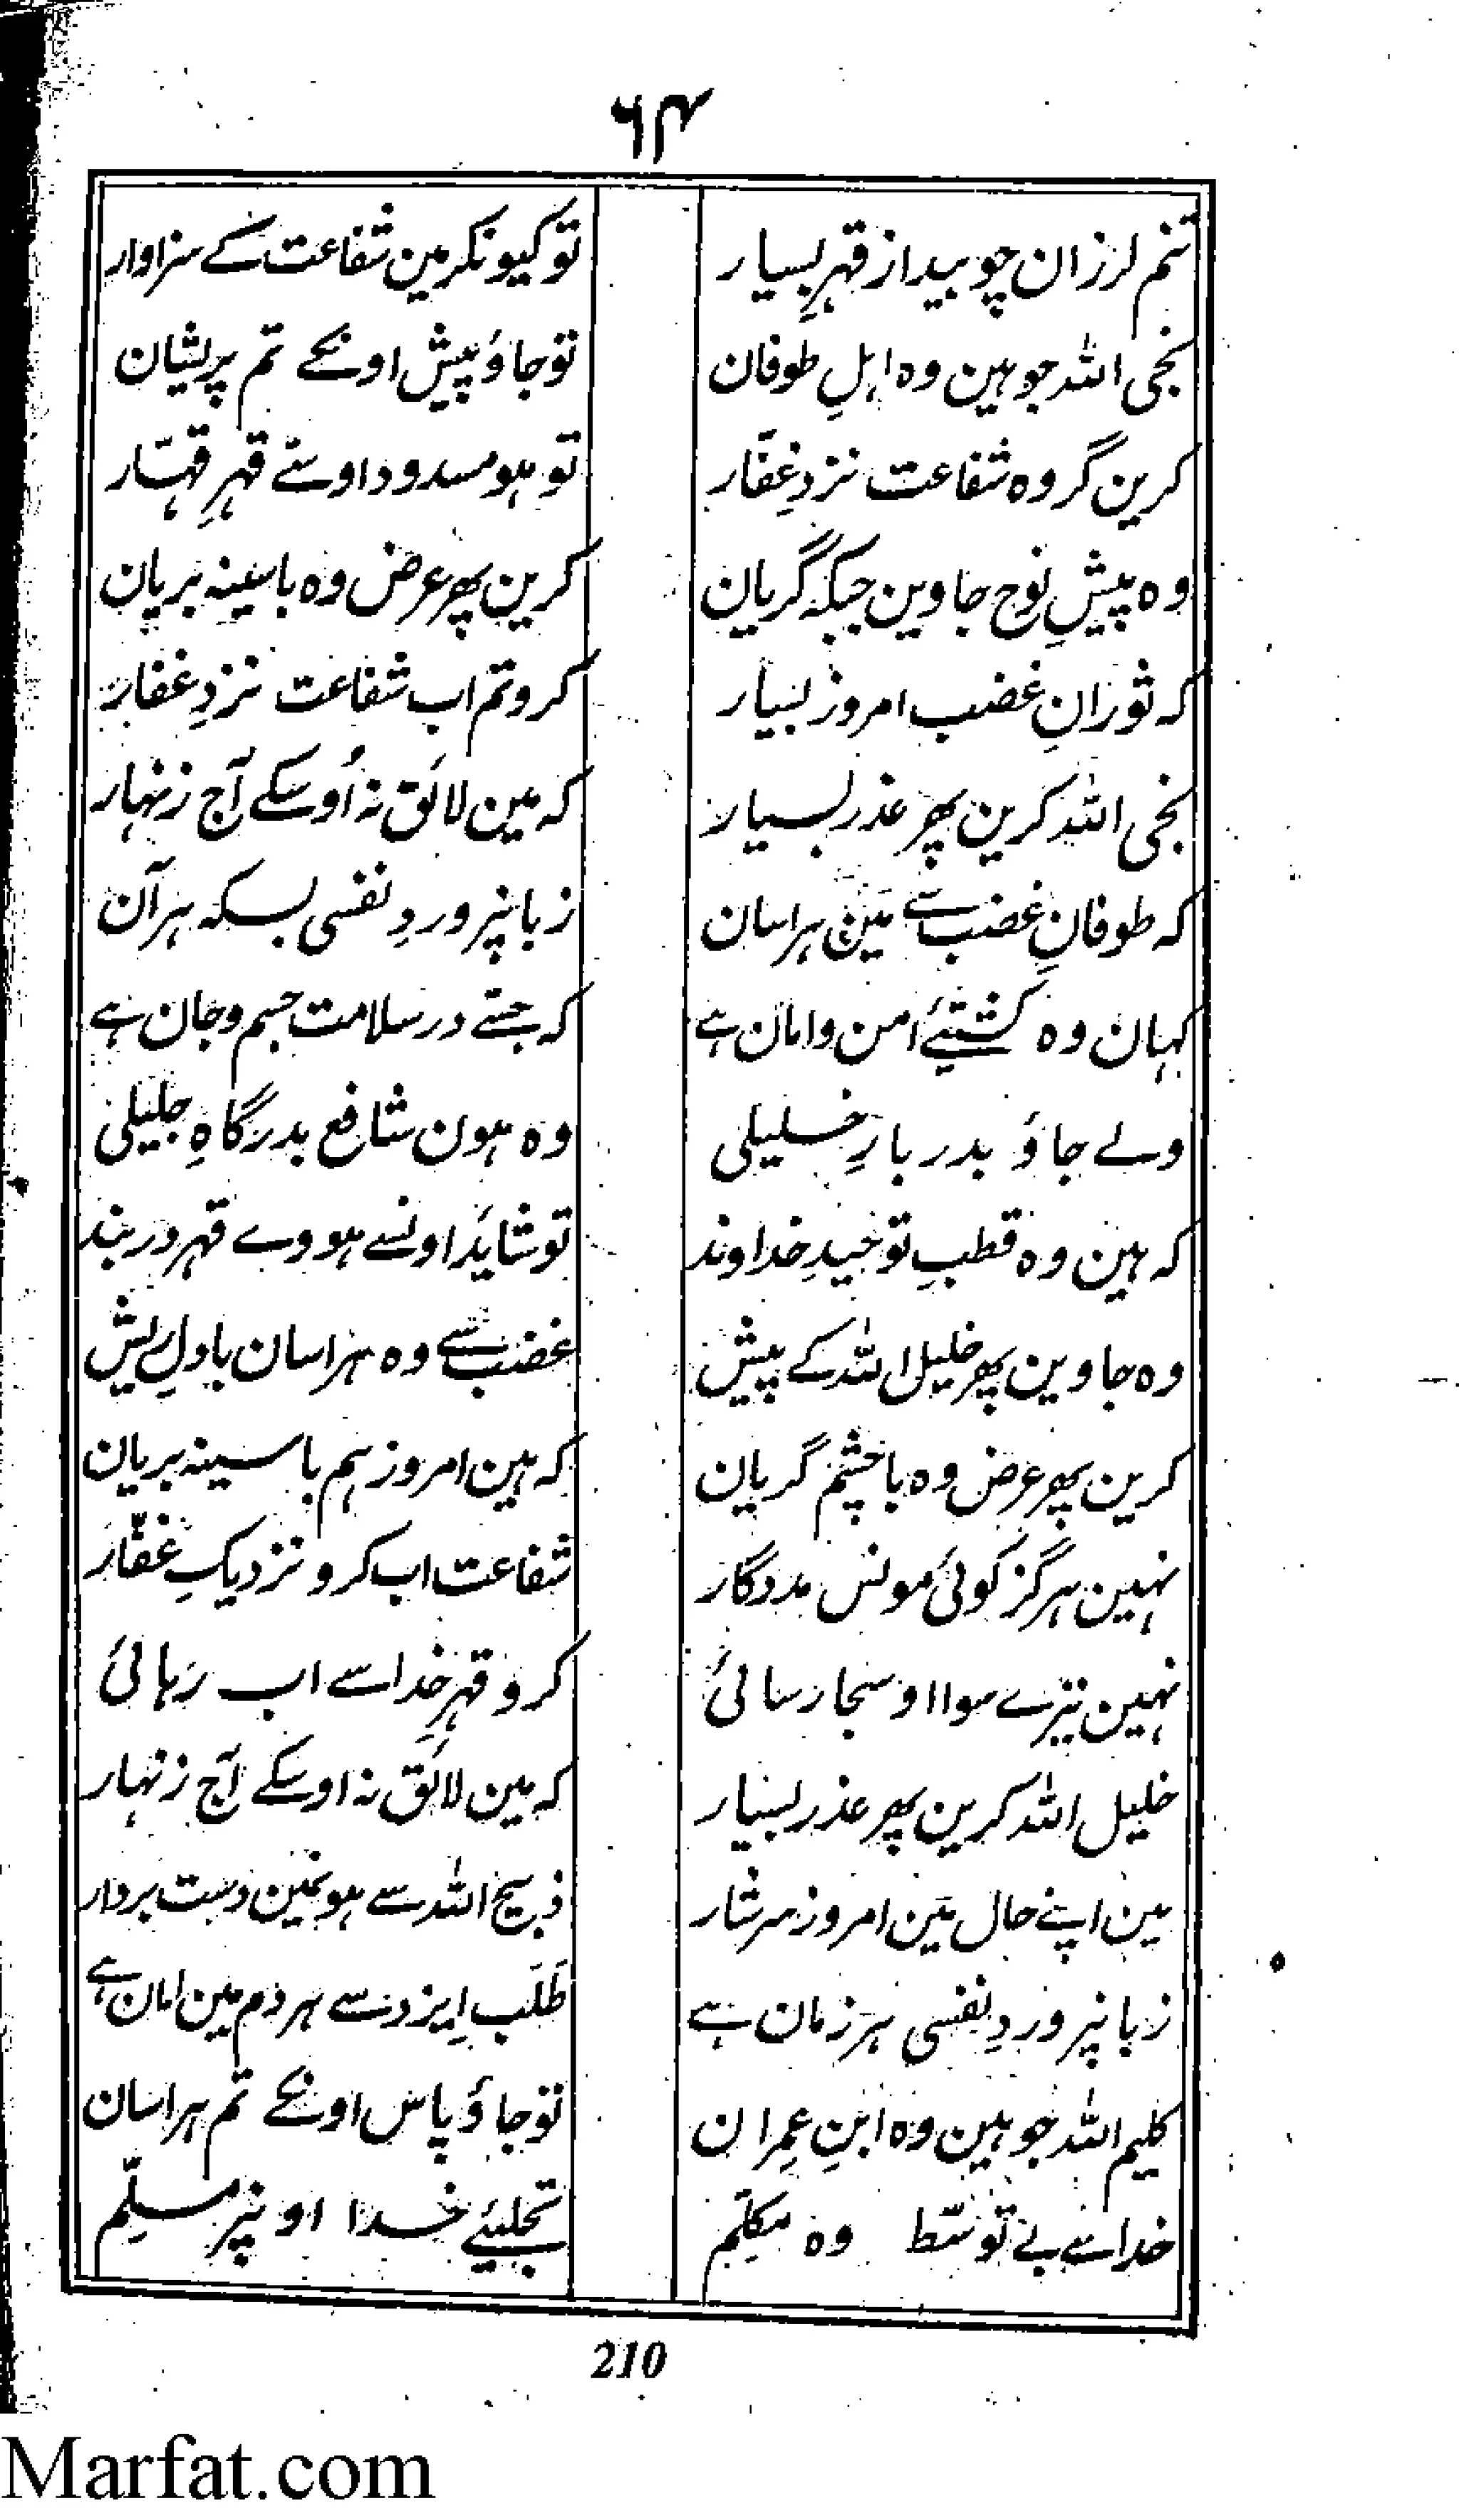 ۶۴
تنم لرزان چو بید از قہرِ بسیار
تو کیونکر مین شفاعت کے سزاوار
نجی اللہ جو ہین وہ اہلِ طوفان
تو جاؤ پیش اونکے تم پریشان
کرین گر وہ شفاعت نزدِ غفّار
تو ہو مسدود اوسنے قہرِ قہّار
وہ پیشِ نوح جاوین جبکہ گریان
کرین پھر عرض وہ با سینہ بریان
کہ ثورانِ غضب امروز بسیار
کرو تم اب شفاعت نزدِ غفار
نجی اللہ کرین پھر عذر بسیار
کہ مین لائق نہ اُوسکے آج زنہار
کہ طوفانِ غضب سے مین ہراسان
زبانپر وردِ نفسی بسکہ ہر آن
کہان وہ کشتیٔے امن و امان ہے
کہ جسے در سلامت جسم و جان ہے
ولے جاؤ بدربارِ خلیلی
وہ ہون شافع بدرگاہِ جلیلی
کہ ہین وہ قطبِ توحیدِ خداوند
تو شاید اونسے ہووے قہر در بند
وہ جاوین پھر خلیل اللہ کے پیش
غضب سے وہ ہراسان با دلِ ریش
کرین پھر عرض وہ با چشم گریان
کہ ہین امروز ہم با سینہ بریان
نہین ہرگز کوئی مونس مددگار
شفاعت اب کرو نزدیکِ غفّار
نہین تیرے سوا اوسجا رسائی
کرو قہرِ خدا سے اب رہائی
خلیل اللہ کرین پھر عذر بسیار
کہ مین لائق نہ اوسکے آج زنہار
مین اپنے حال مین امروز سرشار
ذبیح اللہ سے ہونمین دست بردار
زبانپر وردِ نفسی ہر زمان ہے
طلب ایزد سے ہر دم مین امان ہے
کلیم اللہ جو ہین وہ ابنِ عمران
تو جاؤ پاس اونکے تم ہراسان
خدا سے بے توسّط وہ مکلّم
تجلیٔے خدا اونپر مسلّم
210
Marfat.com